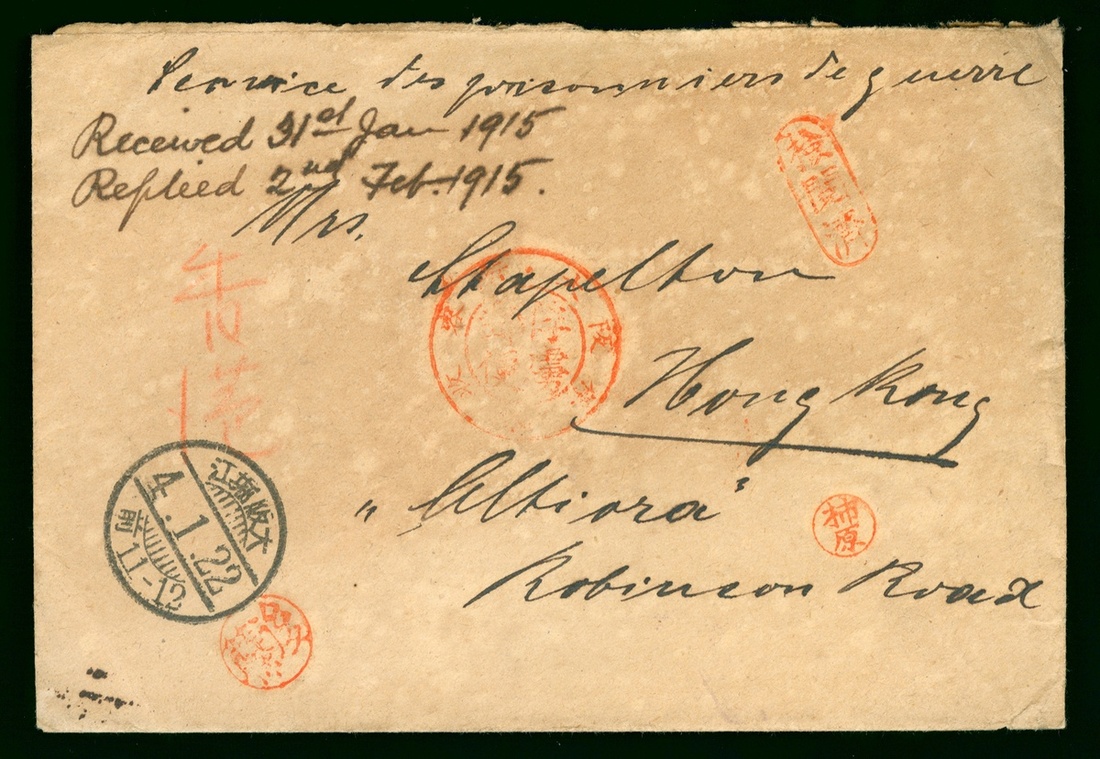 Service des prisonniers de guerre
Received 31st Jan 1915
Replied 2nd Feb. 1915.
Mrs.
Stapelton
Hong Kong
"Altiora"
Robinson Road
検閲済
香港
大阪堀江
4.1.22
前11-12
柿原